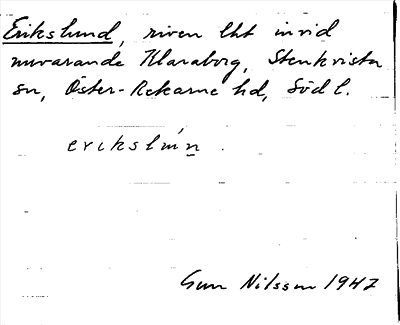 Erikslund, riven lht invid
nuvarande Klaraborg, Stenkvista
sn, Öster-Rekarne hd, Södl.
erikslún.
Gun Nilsson 1947